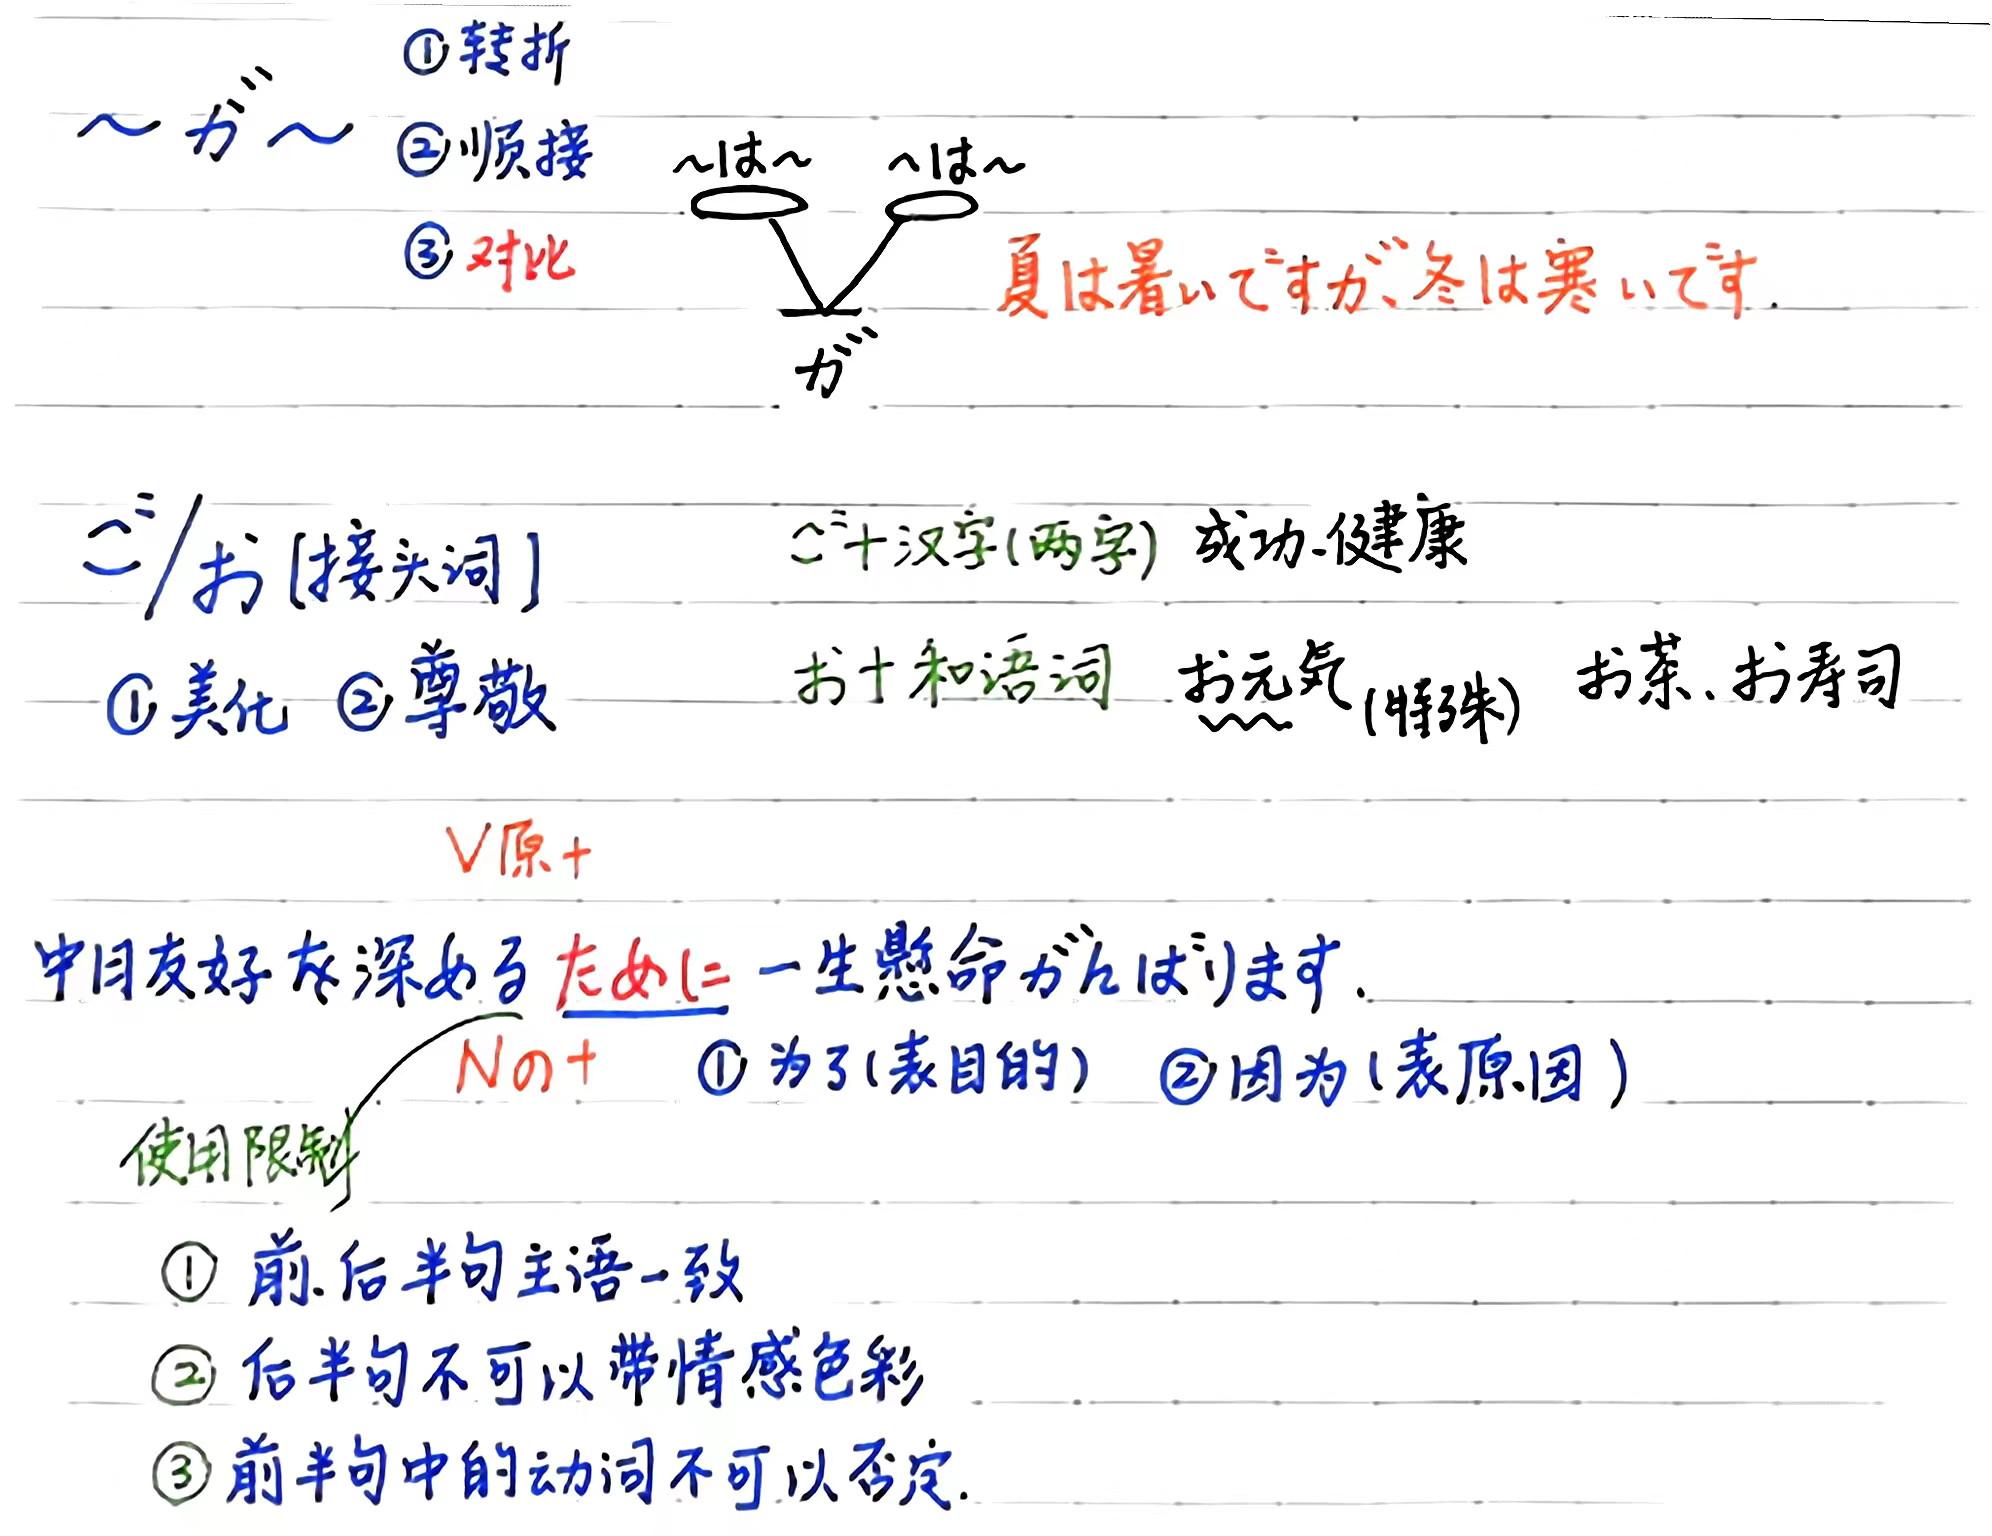 ~が~ ①转折
②顺接
~は~ ~は~
③对比
夏は暑いですが、冬は寒いです.
が
ご/お [接头词]
ご+汉字(两字) 成功.健康
①美化 ②尊敬
お+和语词 お元気(特殊) お茶、お寿司
V原+
中日友好を深めるために一生懸命がんばります.
Nの+ ①为了(表目的) ②因为(表原因)
使用限制
① 前.后半句主语一致
② 后半句不可以带情感色彩
③ 前半句中的动词不可以否定.